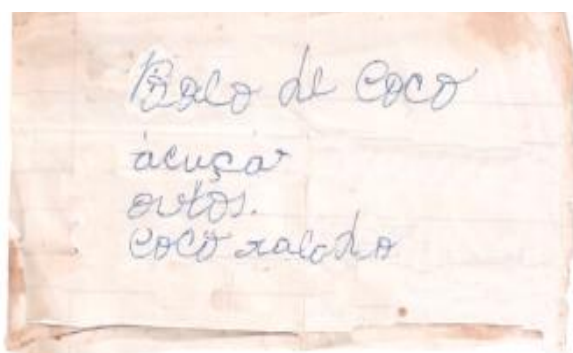 Bolo de Coco
acuçar
ovtos.
coco ralodo